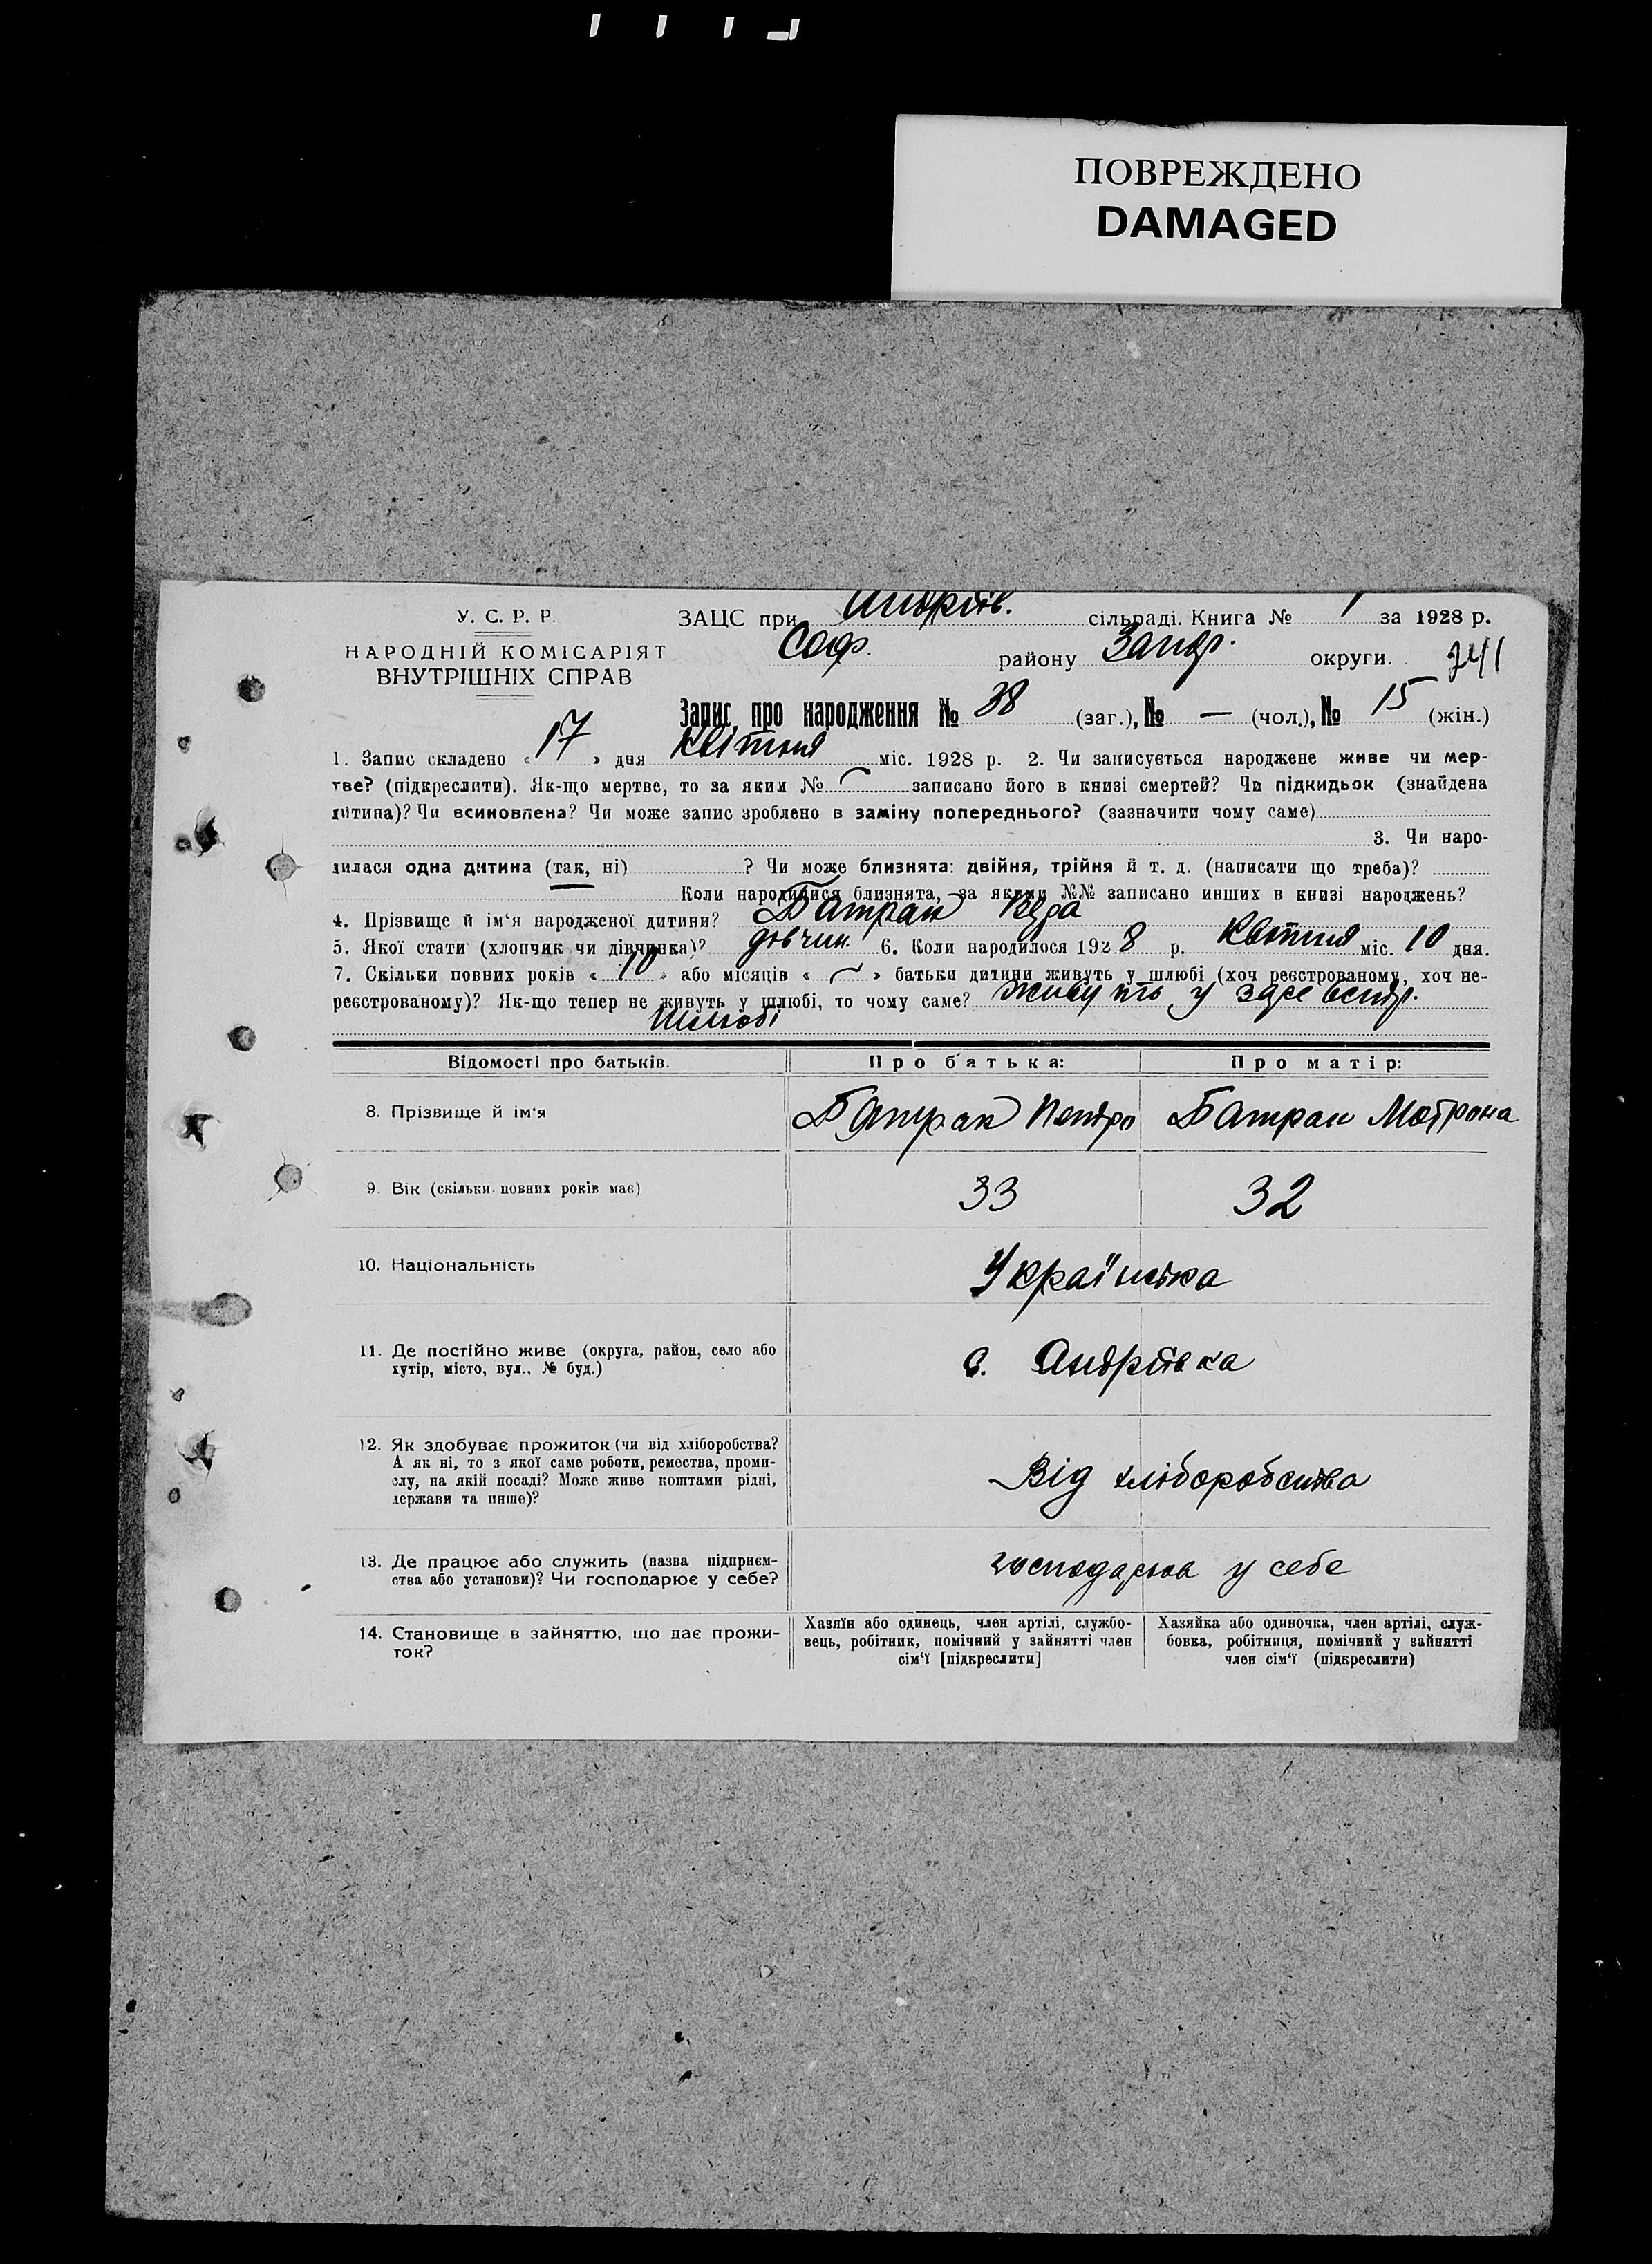 ПОВРЕЖДЕНО
DAMAGED
У. С. Р. Р.
НАРОДНІЙ КОМІСАРІЯТ
ВНУТРІШНІХ СПРАВ
ЗАЦС при Андріїв. сільраді. Книга № 1 за 1928 р.
Соф. району Запор. округи. 241
Запис про народження № 38 (заг.), № — (чол.), № 15 (жін.)
1. Запис складено « 17 » дня Квітня міс. 1928 р. 2. Чи записується народжене живе чи мер-
тве? (підкреслити). Як-що мертве, то за яким № записано його в книзі смертей? Чи підкидьок (знайдена
дитина)? Чи всиновлена? Чи може запис зроблено в заміну попереднього? (зазначити чому саме)
3. Чи наро-
дилася одна дитина (так, ні) ? Чи може близнята: двійня, трійня й т. д. (написати що треба)?
Коли народилися близнята, за якими №№ записано инших в книзі народжень?
4. Прізвище й ім'я народженої дитини? Батрак
5. Якої стати (хлопчик чи дівчинка)? дівчин. 6. Коли народилося 1928 р. Квітня міс. 10 дня.
7. Скільки повних років « 10 » або місяців « — » батьки дитини живуть у шлюбі (хоч реєстрованому, хоч не-
реєстрованому)? Як-що тепер не живуть у шлюбі, то чому саме? живуть у
шлюбі
Відомості про батьків. Про батька: Про матір:
8. Прізвище й ім'я Батрак Петро Батрак Мотрона
9. Вік (скільки повних років має) 33 32
10. Національність Українка
11. Де постійно живе (округа, район, село або
хутір, місто, вул., № буд.) с. Андріївка
12. Як здобуває прожиток (чи від хліборобства?
А як ні, то з якої саме роботи, ремества, проми-
слу, на якій посаді? Може живе коштами рідні,
держави та инше)? Від хліборобства
13. Де працює або служить (назва підприєм-
ства або установи)? Чи господарює у себе? господарює у себе
14. Становище в зайняттю, що дає прожи-
ток?
Хазяїн або одинець, член артілі, службо-
вець, робітник, помічний у зайнятті член
сім'ї [підкреслити]
Хазяйка або одиночка, член артілі, служ-
бовка, робітниця, помічний у зайнятті
член сім'ї (підкреслити)